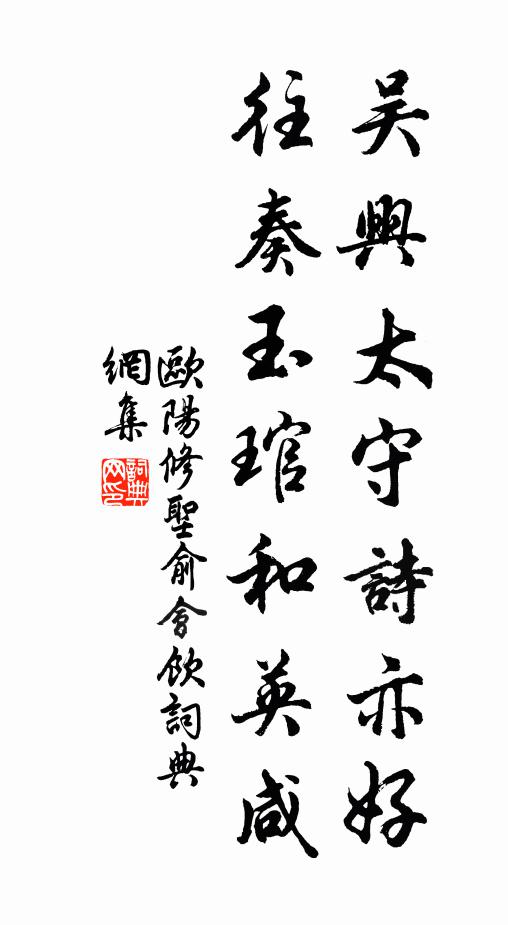 吳興太守詩亦好
往奏玉琯和英咸
歐陽修聖俞會飲詞典
網集
詞典网印